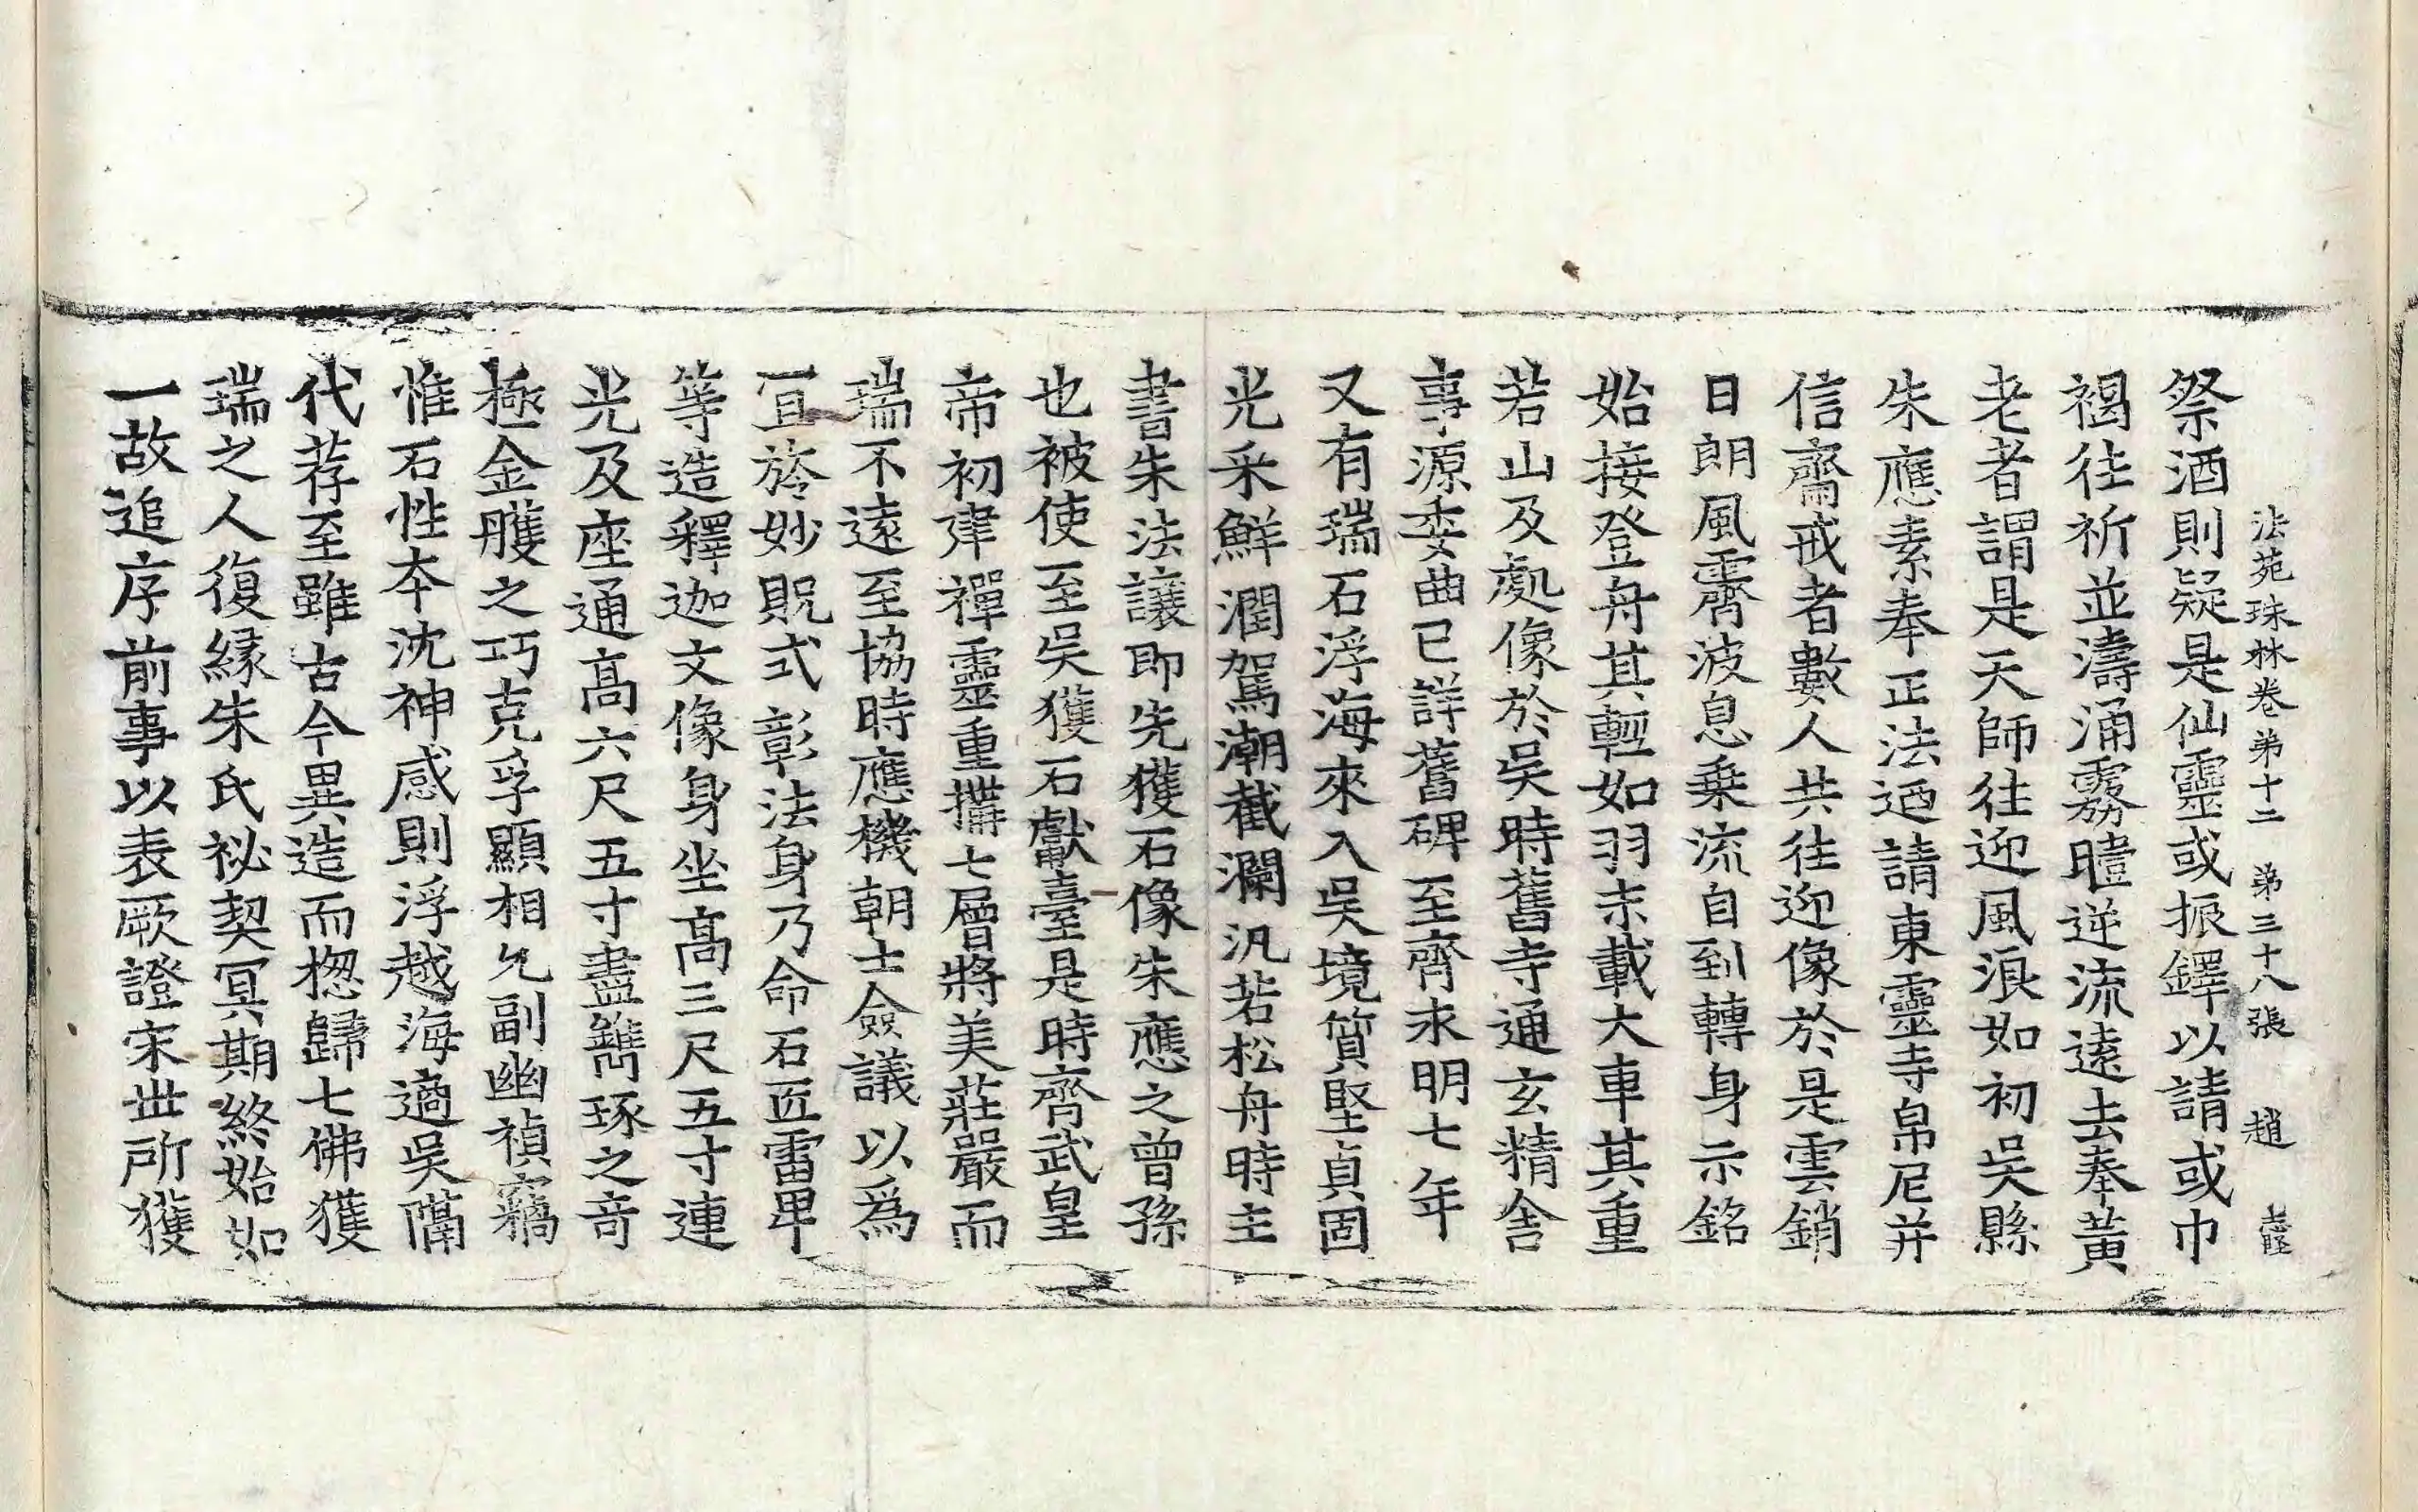 法苑珠林卷弟十二　弟三十八張　趙
祭酒則疑是仙靈或振鐸以請或巾
褐往祈並濤涌霧曀逆流遠去奉黄
老者謂是天師往迎風浪如初吳縣
朱應素奉正法迺請東靈寺帛尼并
信齋戒者數人共往迎像於是雲銷
日朗風霽波息乗流自到轉身示銘
始接登舟其輕如羽末載大車其重
若山及處像於吳時舊寺通玄精舎
事源委曲已詳舊碑至齊永明七年
又有瑞石浮海來入吳境質堅貞固
光采鮮潤駕潮截瀾汎若松舟時主
書朱法讓即先獲石像朱應之曾孫
也被使至吳獲石獻臺是時齊武皇
帝初建禪靈重搆七層將美莊嚴而
瑞不遠至協時應機朝士僉議以爲
冝於妙貺式彰法身乃命石匠雷卑
等造釋迦文像身坐髙三尺五寸連
光及座通髙六尺五寸盡鐫琢之竒
極金雘之巧克孚顯相允副幽禎竊
惟石性夲沈神感則浮越海適吳隬
代荐至雖古今異造而揔歸七佛獲
瑞之人復縁朱氏祕契冥期終始如
一故追序前事以表厥證宋世所獲